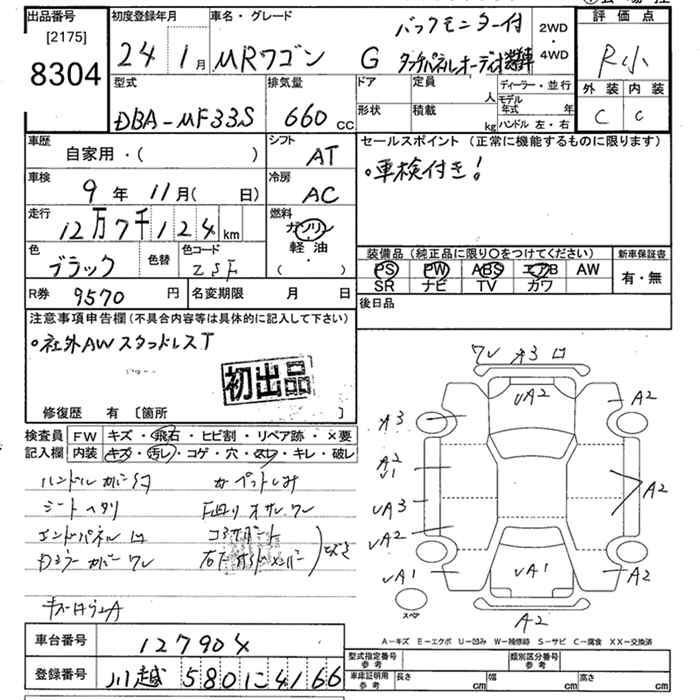 出品番号
[2175]
8304
初度登録年月
24 1月
車名・グレード
MRワゴン G
バックモニター付
タッチパネルオーディオ装着車
2WD
・
4WD
評価点
R小
外装 内装
C C
型式
DBA-MF33S
排気量
660 CC
ドア
定員
人
形状
積載
kg
ディーラー・並行
モデル年式 年
ハンドル 左・右
車歴
自家用・( )
シフト
AT
セールスポイント (正常に機能するものに限ります)
・車検付き!
車検
9年 11月( 日)
冷房
AC
走行
12万7千124km
燃料
ガソリン
軽油
( ・ )
色
ブラック
色替
色コード
ZSF
装備品 (純正品に限り○をつけてください)
PS PW ABS エアB AW
SR ナビ TV カワ
新車保証書
有・無
R券
9570 円
名変期限 月 日
後日品
注意事項申告欄(不具合内容等は具体的に記入して下さい)
・社外AWスタッドレスT
初出品
修復歴 有 〔箇所 〕
検査員
記入欄
FW キズ・飛石・ヒビ割・リペア跡・×要
内装 キズ・汚レ・コゲ・穴・スレ・キレ・破レ
シートヘタリ
ワレ
A3
A2
A3
A2
U1
UA3
UA2
UA1
UA2
UA1
A2
A2
A2
A2
スペア
A-キズ E-エクボ U-凹み W-補修跡 S-サビ C-腐食 XX-交換済
車台番号
127904
登録番号
川越 580 に 4166
型式指定番号
参考
類別区分番号
参考
車庫証明用
参考
長さ cm 幅 cm 高さ cm